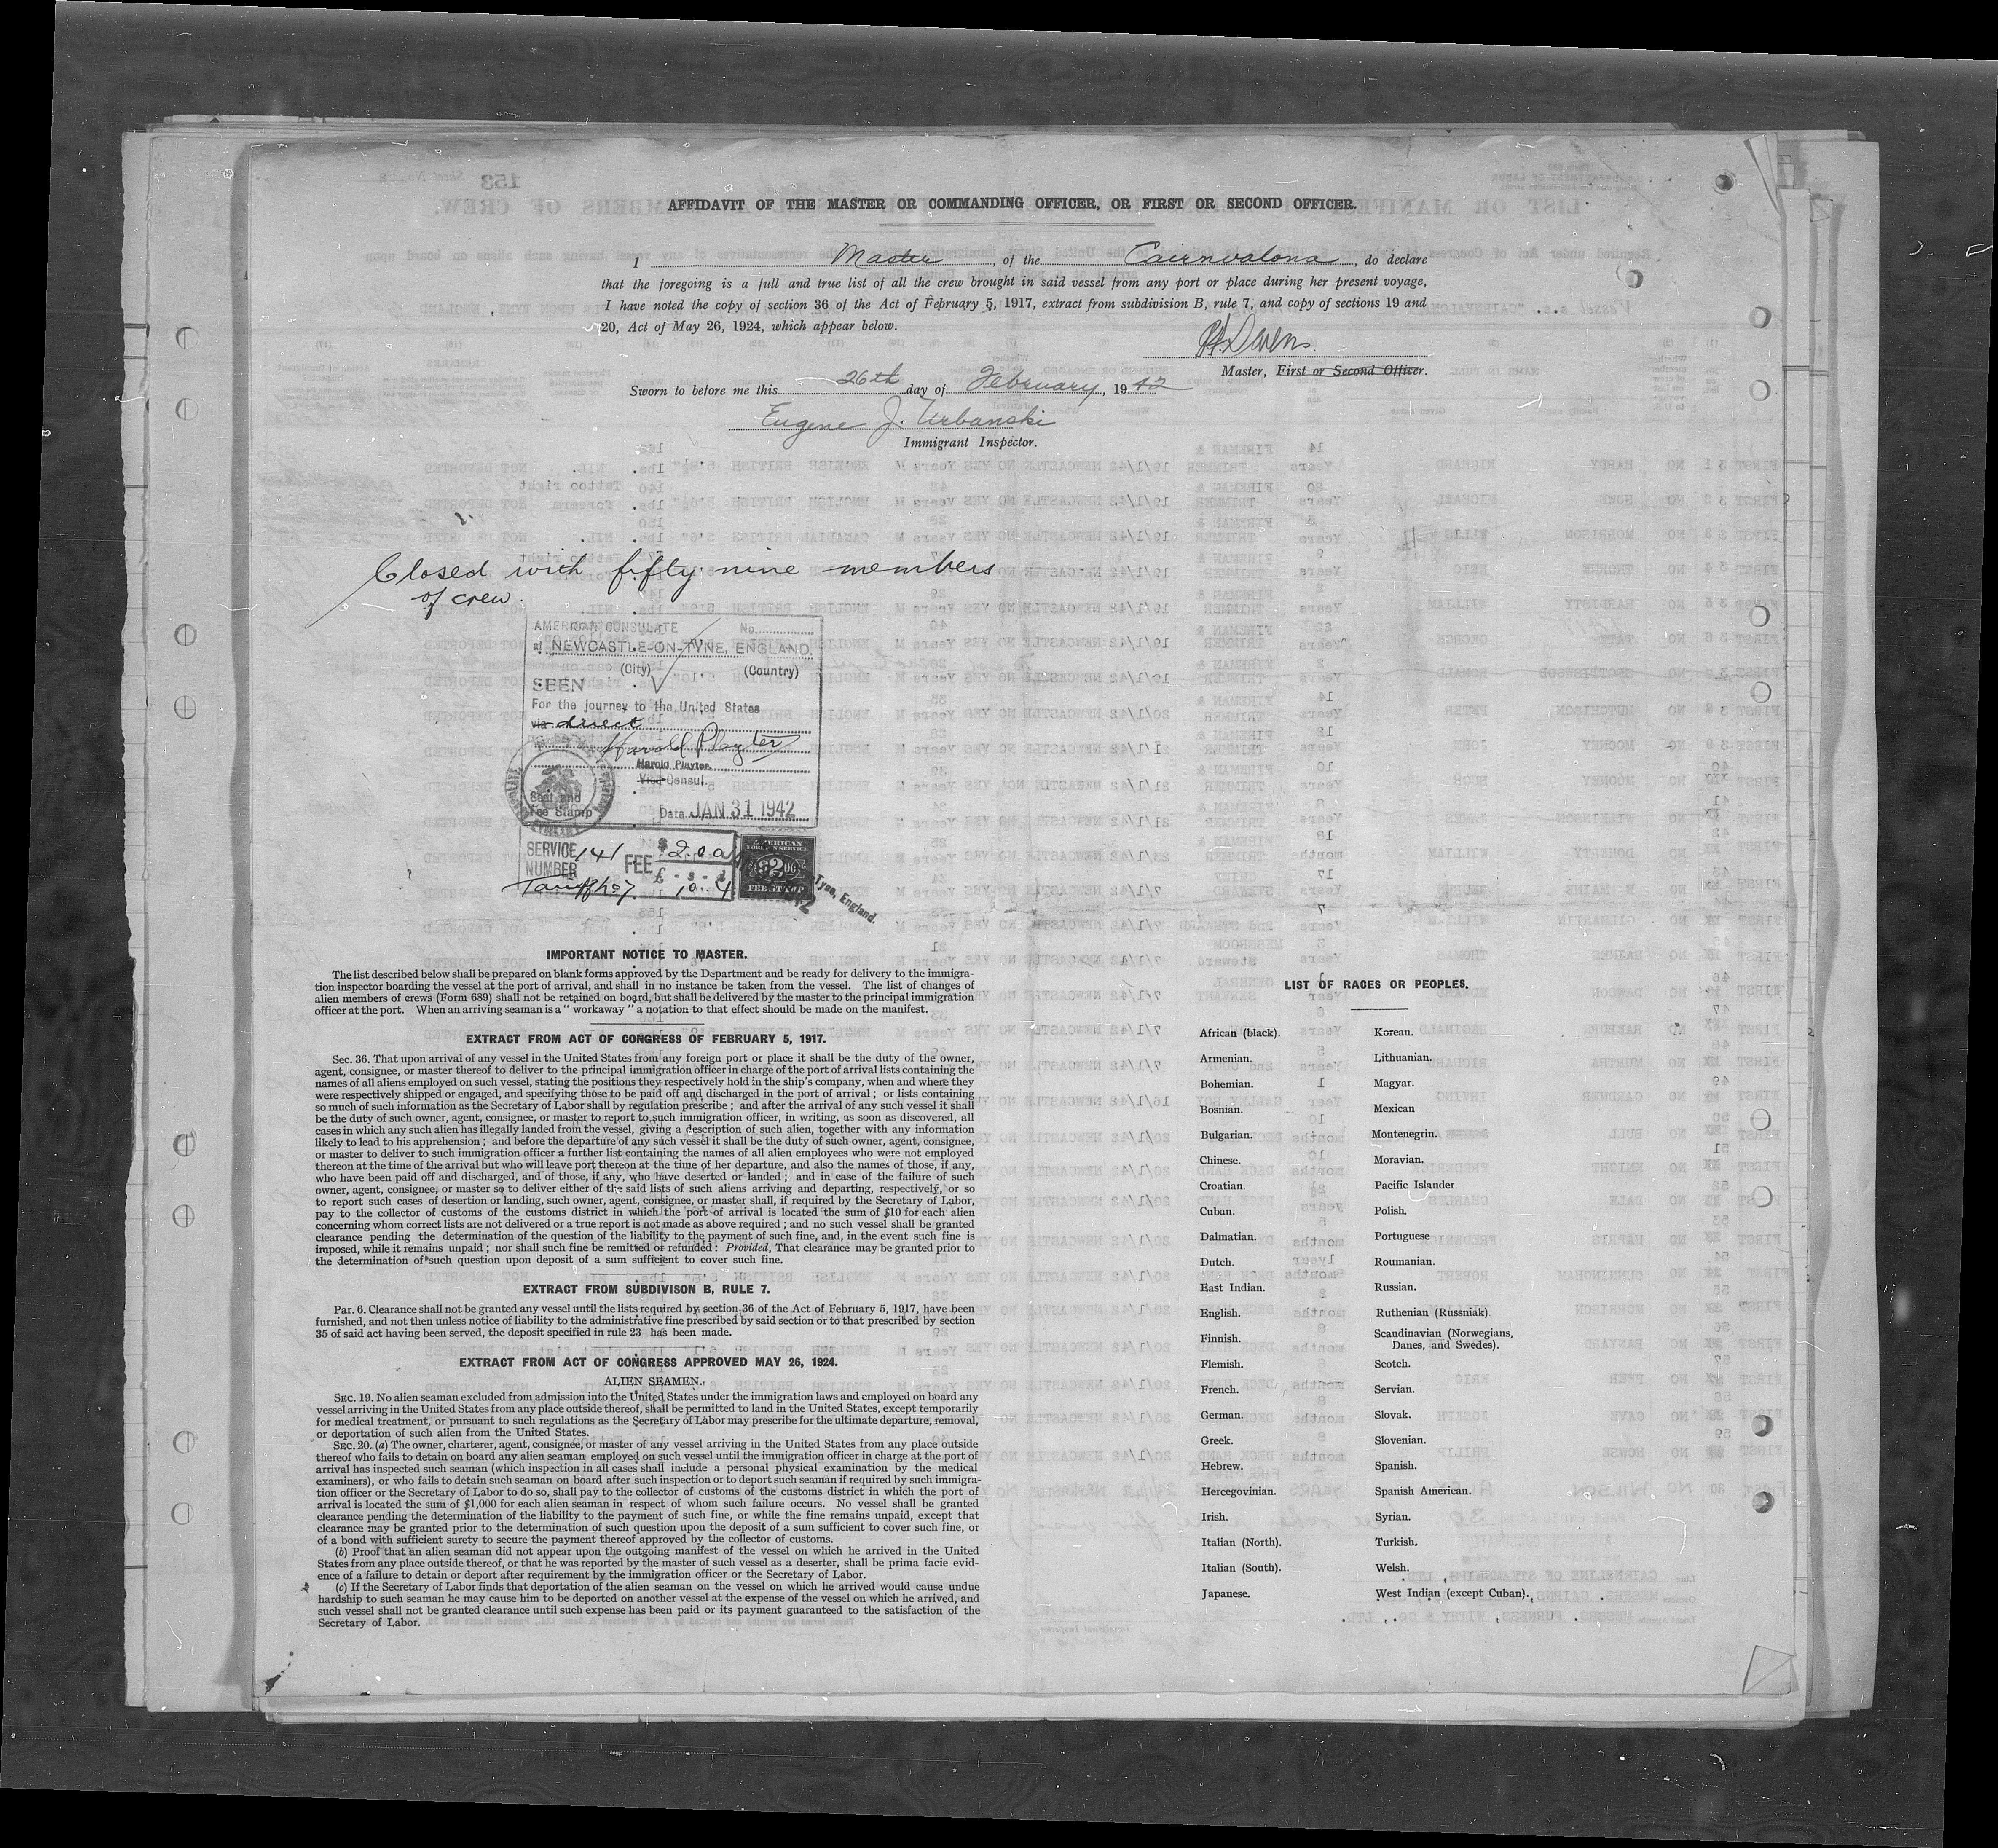 AFFIDAVIT OF THE MASTER OR COMMANDING OFFICER, OR FIRST OR SECOND OFFICER.
I Master, of the Cairnvalona, do declare
that the foregoing is a full and true list of all the crew brought in said vessel from any port or place during her present voyage,
I have noted the copy of section 36 of the Act of February 5, 1917, extract from subdivision B, rule 7, and copy of sections 19 and
20, Act of May 26, 1924, which appear below.
Master, First or Second Officer.
Sworn to before me this 26th day of February, 1942
Eugene J. Urbanski
Immigrant Inspector.
Closed with fifty nine members
of crew.
AMERICAN CONSULATE No.
at NEWCASTLE-ON-TYNE, ENGLAND.
(City) (Country)
SEEN
For the journey to the United States
via direct
Harold Playter
Harold Playter
Vice Consul.
Seal and
Fee Stamp
Date JAN 31 1942
SERVICE NUMBER 141
FEE $2.00
£ - s - d
10. 4
AMERICAN
FOREIGN SERVICE
$2.00
FEE STAMP
Tyne, England.
IMPORTANT NOTICE TO MASTER.
The list described below shall be prepared on blank forms approved by the Department and be ready for delivery to the immigra-
tion inspector boarding the vessel at the port of arrival, and shall in no instance be taken from the vessel. The list of changes of
alien members of crews (Form 689) shall not be retained on board, but shall be delivered by the master to the principal immigration
officer at the port. When an arriving seaman is a " workaway " a notation to that effect should be made on the manifest.
EXTRACT FROM ACT OF CONGRESS OF FEBRUARY 5, 1917.
Sec. 36. That upon arrival of any vessel in the United States from any foreign port or place it shall be the duty of the owner,
agent, consignee, or master thereof to deliver to the principal immigration officer in charge of the port of arrival lists containing the
names of all aliens employed on such vessel, stating the positions they respectively hold in the ship's company, when and where they
were respectively shipped or engaged, and specifying those to be paid off and discharged in the port of arrival ; or lists containing
so much of such information as the Secretary of Labor shall by regulation prescribe ; and after the arrival of any such vessel it shall
be the duty of such owner, agent, consignee, or master to report to such immigration officer, in writing, as soon as discovered, all
cases in which any such alien has illegally landed from the vessel, giving a description of such alien, together with any information
likely to lead to his apprehension ; and before the departure of any such vessel it shall be the duty of such owner, agent, consignee,
or master to deliver to such immigration officer a further list containing the names of all alien employees who were not employed
thereon at the time of the arrival but who will leave port thereon at the time of her departure, and also the names of those, if any,
who have been paid off and discharged, and of those, if any, who have deserted or landed ; and in case of the failure of such
owner, agent, consignee, or master so to deliver either of the said lists of such aliens arriving and departing, respectively, or so
to report such cases of desertion or landing, such owner, agent, consignee, or master shall, if required by the Secretary of Labor,
pay to the collector of customs of the customs district in which the port of arrival is located the sum of $10 for each alien
concerning whom correct lists are not delivered or a true report is not made as above required ; and no such vessel shall be granted
clearance pending the determination of the question of the liability to the payment of such fine, and, in the event such fine is
imposed, while it remains unpaid ; nor shall such fine be remitted or refunded : Provided, That clearance may be granted prior to
the determination of such question upon deposit of a sum sufficient to cover such fine.
EXTRACT FROM SUBDIVISON B, RULE 7.
Par. 6. Clearance shall not be granted any vessel until the lists required by section 36 of the Act of February 5, 1917, have been
furnished, and not then unless notice of liability to the administrative fine prescribed by said section or to that prescribed by section
35 of said act having been served, the deposit specified in rule 23 has been made.
EXTRACT FROM ACT OF CONGRESS APPROVED MAY 26, 1924.
ALIEN SEAMEN.
SEC. 19. No alien seaman excluded from admission into the United States under the immigration laws and employed on board any
vessel arriving in the United States from any place outside thereof, shall be permitted to land in the United States, except temporarily
for medical treatment, or pursuant to such regulations as the Secretary of Labor may prescribe for the ultimate departure, removal,
or deportation of such alien from the United States.
SEC. 20. (a) The owner, charterer, agent, consignee, or master of any vessel arriving in the United States from any place outside
thereof who fails to detain on board any alien seaman employed on such vessel until the immigration officer in charge at the port of
arrival has inspected such seaman (which inspection in all cases shall include a personal physical examination by the medical
examiners), or who fails to detain such seaman on board after such inspection or to deport such seaman if required by such immigra-
tion officer or the Secretary of Labor to do so, shall pay to the collector of customs of the customs district in which the port of
arrival is located the sum of $1,000 for each alien seaman in respect of whom such failure occurs. No vessel shall be granted
clearance pending the determination of the liability to the payment of such fine, or while the fine remains unpaid, except that
clearance may be granted prior to the determination of such question upon the deposit of a sum sufficient to cover such fine, or
of a bond with sufficient surety to secure the payment thereof approved by the collector of customs.
(b) Proof that an alien seaman did not appear upon the outgoing manifest of the vessel on which he arrived in the United
States from any place outside thereof, or that he was reported by the master of such vessel as a deserter, shall be prima facie evid-
ence of a failure to detain or deport after requirement by the immigration officer or the Secretary of Labor.
(c) If the Secretary of Labor finds that deportation of the alien seaman on the vessel on which he arrived would cause undue
hardship to such seaman he may cause him to be deported on another vessel at the expense of the vessel on which he arrived, and
such vessel shall not be granted clearance until such expense has been paid or its payment guaranteed to the satisfaction of the
Secretary of Labor.
LIST OF RACES OR PEOPLES.
African (black).
Armenian.
Bohemian.
Bosnian.
Bulgarian.
Chinese.
Croatian.
Cuban.
Dalmatian.
Dutch.
East Indian.
English.
Finnish.
Flemish.
French.
German.
Greek.
Hebrew.
Hercegovinian.
Irish.
Italian (North).
Italian (South).
Japanese.
Korean.
Lithuanian.
Magyar.
Mexican
Montenegrin.
Moravian.
Pacific Islander
Polish.
Portuguese
Roumanian.
Russian.
Ruthenian (Russniak).
Scandinavian (Norwegians,
Danes, and Swedes).
Scotch.
Servian.
Slovak.
Slovenian.
Spanish.
Spanish American.
Syrian.
Turkish.
Welsh.
West Indian (except Cuban).